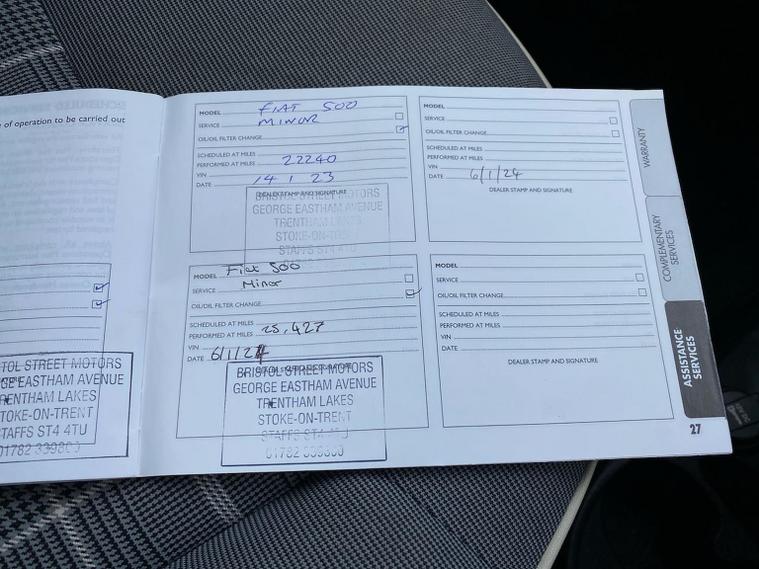 SCHEDULED SERVICE
e of operation to be carried out
TOL STREET MOTORS
GE EASTHAM AVENUE
TRENTHAM LAKES
STOKE-ON-TRENT
STAFFS ST4 4TU
MODEL FIAT 500
SERVICE MINOR
OIL/OIL FILTER CHANGE
SCHEDULED AT MILES
PERFORMED AT MILES 22240
VIN
DATE 14 1 23
DEALER STAMP AND SIGNATURE
BRISTOL STREET MOTORS
GEORGE EASTHAM AVENUE
TRENTHAM LAKES
STOKE-ON-TRENT
STAFFS ST4 4TU
MODEL Fiat 500
SERVICE Minor
OIL/OIL FILTER CHANGE
SCHEDULED AT MILES
PERFORMED AT MILES 25,427
VIN
DATE 6/1/24
BRISTOL STREET MOTORS
GEORGE EASTHAM AVENUE
TRENTHAM LAKES
STOKE-ON-TRENT
MODEL
SERVICE
OIL/OIL FILTER CHANGE
SCHEDULED AT MILES
PERFORMED AT MILES
VIN
DATE 6/1/24
DEALER STAMP AND SIGNATURE
MODEL
SERVICE
OIL/OIL FILTER CHANGE
SCHEDULED AT MILES
PERFORMED AT MILES
VIN
DATE
DEALER STAMP AND SIGNATURE
WARRANTY
COMPLEMENTARY
SERVICES
ASSISTANCE
SERVICES
27